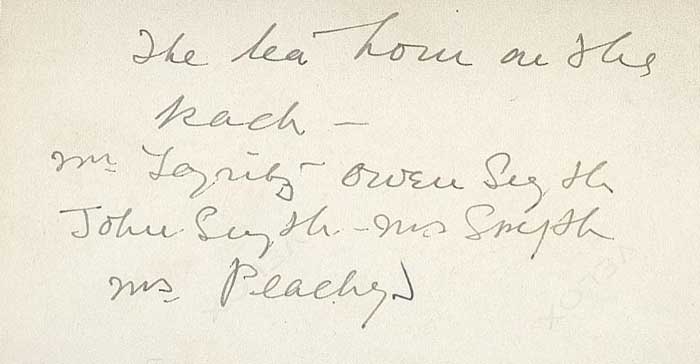 The tea hour on the
–
Mr Layritz Owen Smyth
John Smyth – Mrs Smyth
Mrs Peachey
VELOX